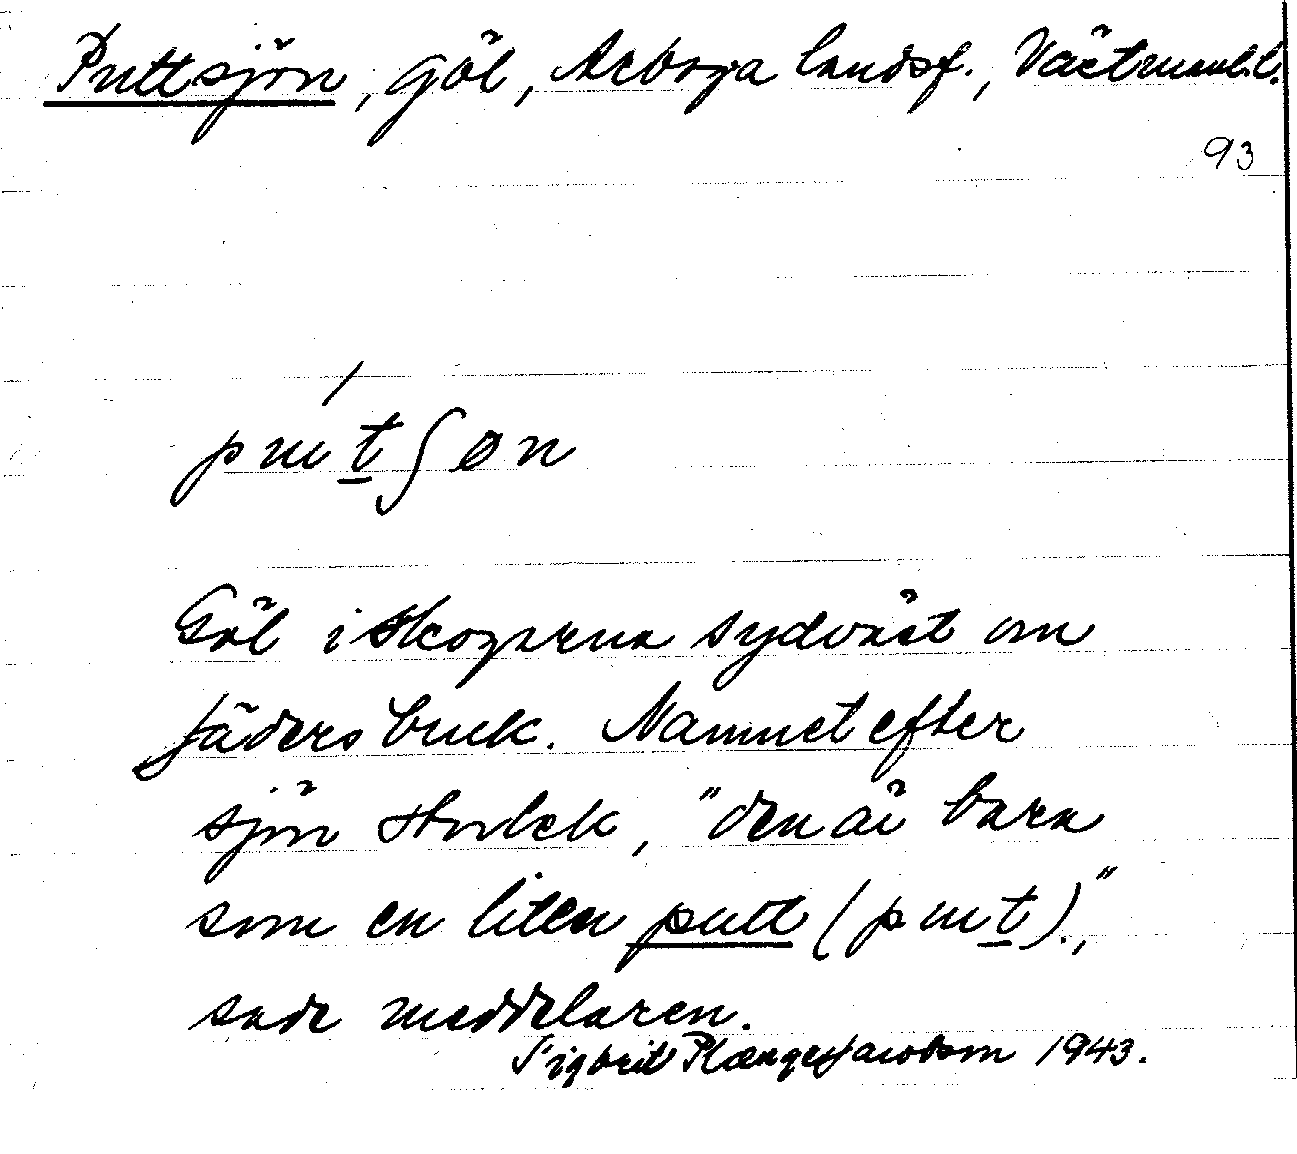 Puttsjön, göl, Arboga landsf., Västmanl. l.
93
pututʃøn
Göl i skogarna sydväst om
Jäders bruk. Namnet efter
sjöns storlek, "den är bara
som en liten putt (put).",
sade meddelaren.
Sigbrit Plænge Jacobson 1943.